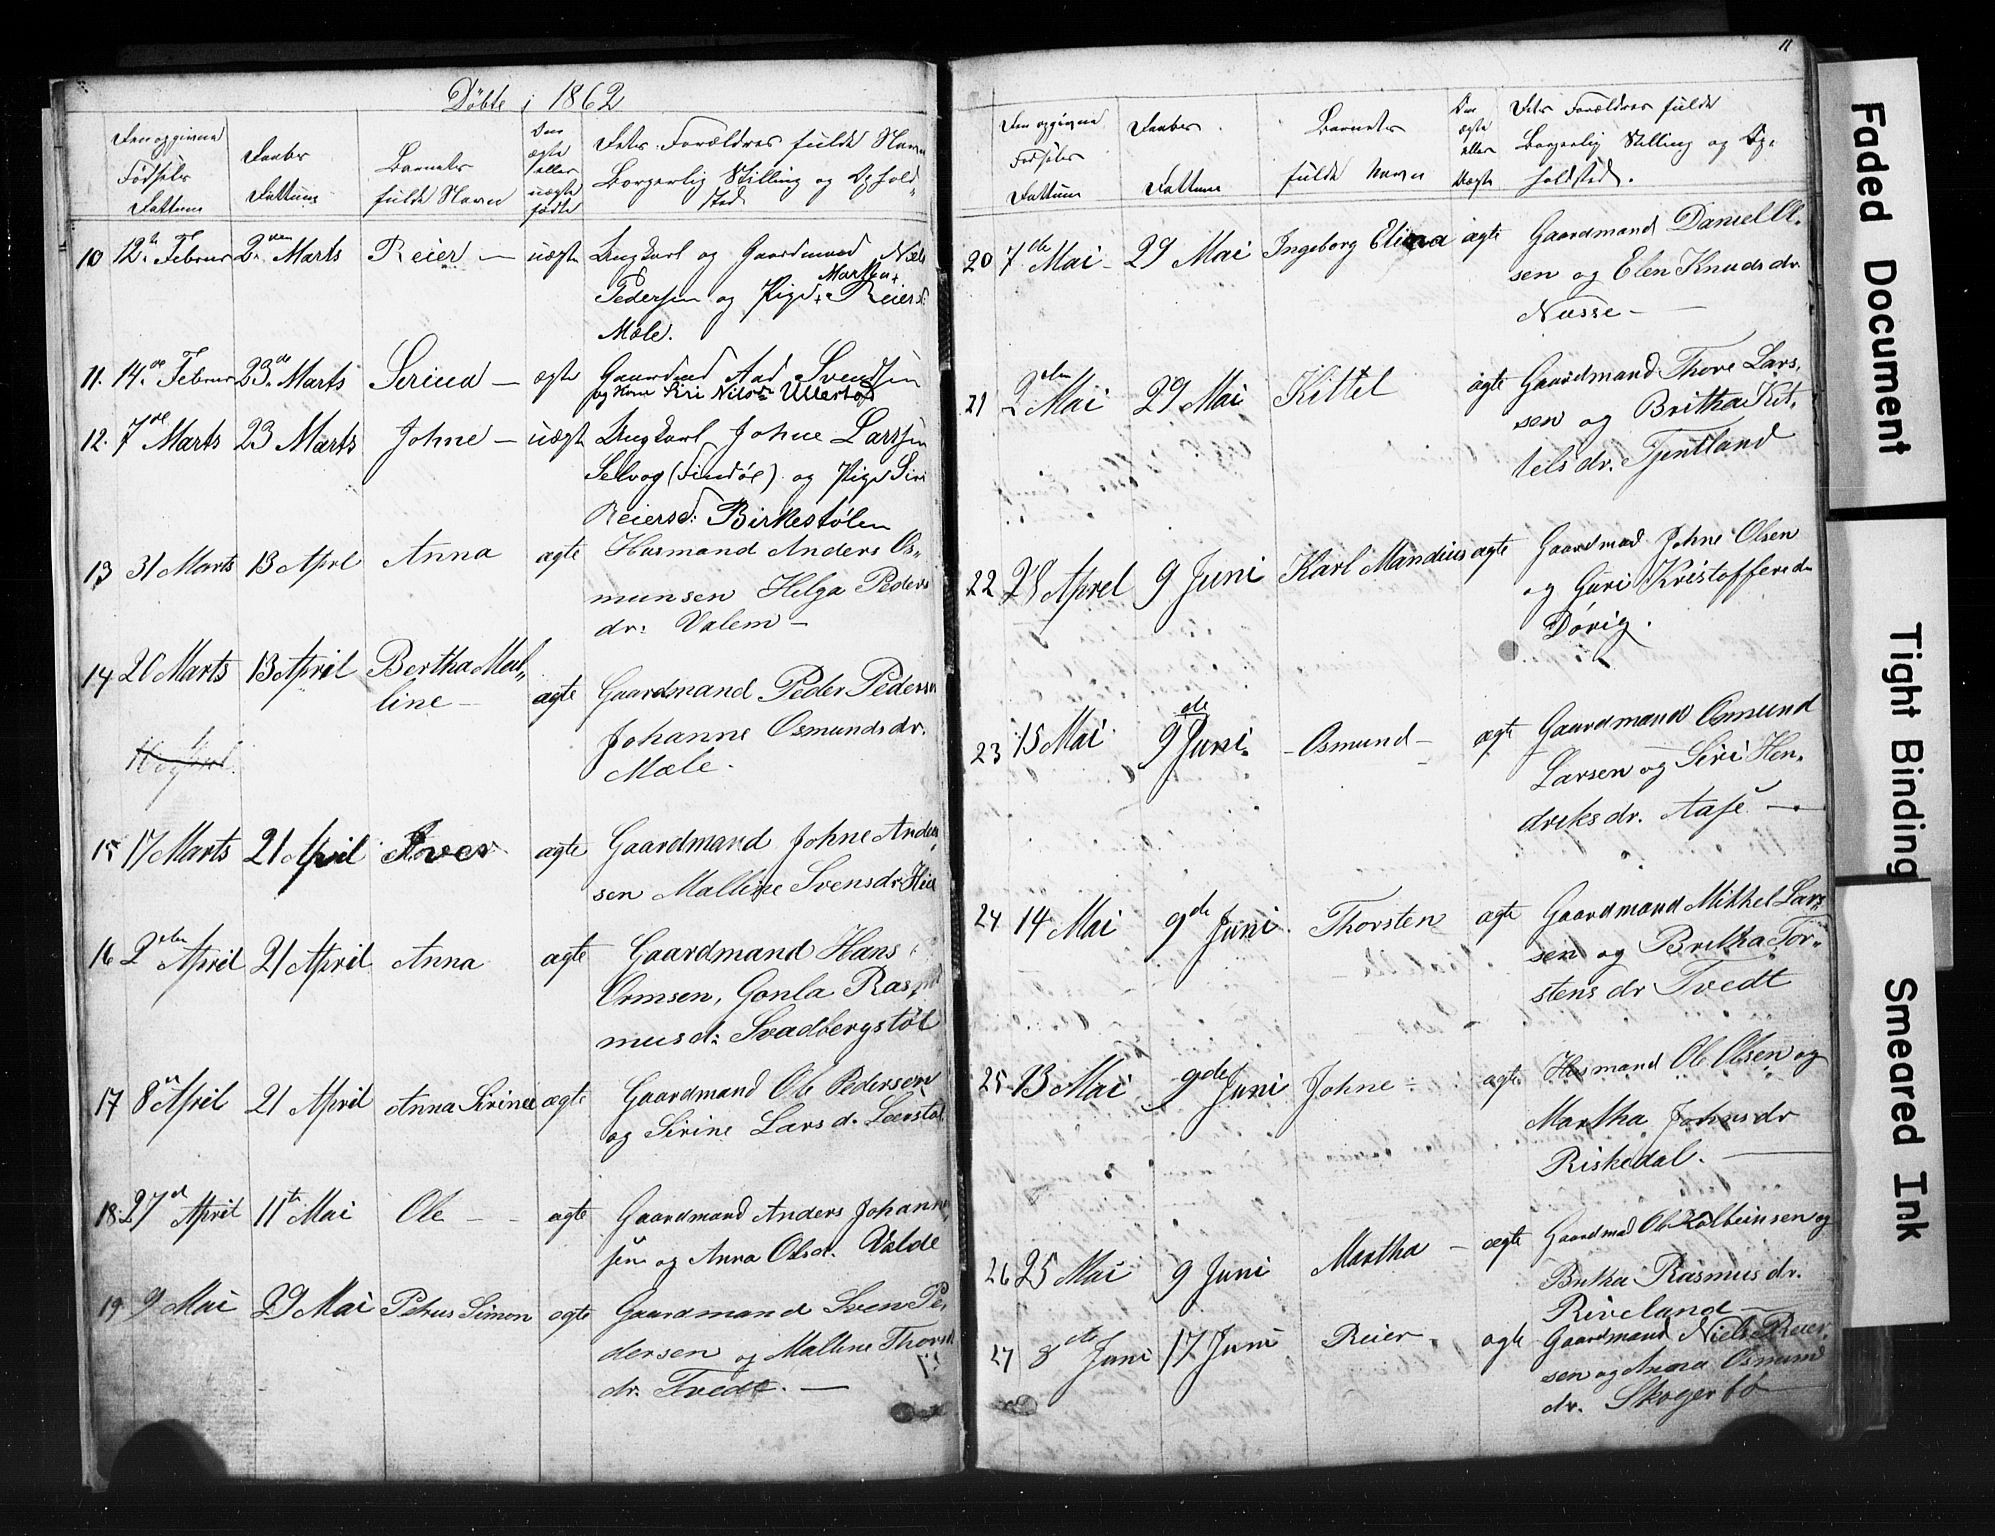 Døbte i 1862
Den opgivne Fødsels Dattum
Daabs Dattum
Barnets fulde Navn
Den ægte eller uægte fødte
Dets Forældres fulde Navn
Borgerlig Stilling og Ophold-
sted
10 12te Februar 2den Marts Reier — uægte Ungkarl og Gaardmand Niels
Pedersen og Pige Martha Reiersd:
Mæle.
11. 14de Februar 23de Marts Serina — ægte Gaardmd Aad Svendsen
og Kone Siri Nilsdr Ullestad
12. 7de Marts 23 Marts Johne — uægte Ungkarl Johne Larssen
Selvog (Findöe) og Pige Siri
Reiersd: Birkestølen
13 31 Marts 13 Aprl Anna ægte Husmand Anders Os-
munsen Helga Peders
dr: Valem —
14 20 Marts 13 April Bertha Mal-
line — ægte Gaardmand Peder Pedersen
Johanne Osmundsdr.
Mæle.
15 17 Marts 21 April Iver ægte Gaardmand Johne Ander
sen Malline Svensdr Hie
16 2den April 21 April Anna ægte Gaardmand Hans
Ormsen, Gonla Ras
musd: Svadbergstøl
17 8de April 21 April Anna Sirine ægte Gaardmand Ole Pedersen
og Sirine Larsd.
18. 27de April 11te Mai Ole — — ægte Gaardmand Anders Johanne
sen og Anna Olsd. Valde
19. 9 Mai 29 Mai Petrus Simon ægte Gaardmand Sven Pe-
dersen og Malline Thorst
dr. Tvedt. —
11
Den opgivne Fødsels Dattum
Daabs Dattum
Barnets fulde Navn
Den ægte eller Uægte
Dets Forældres fulde
Borgerlig Stilling og Op-
holdsted.
20 7de Mai — 29 Mai Ingeborg Elina ægte Gaardmand Daniel Ol-
sen og Elen Knudsdr
Næsse —
21 2den Mai 29 Mai Kittel ægte Gaardmand Thore Lars-
sen og Britha Kit-
telsdr. Tjentland
22 28 Aprel 9 Juni Karl Mandius ægte Gaardmad Johne Olsen
og Guri Kristoffersd
Dørig.
23 15 Mai 9de Juni. — Osmund — ægte Gaardmand Osmund
Larsen og Siri Hen-
driksdr. Aase —
24 14 Mai 9de Juni. Thorsten ægte Gaardmand Mikkel Lars-
sen og Britha Tor-
stensdr Tvedt
25 13 Mai 9de Juni Johne ægte Husmand Ole Olsen og
Martha Johnsdr
Riskedal. —
26 25 Mai 9 Juni Martha — ægte Gaardmad Ole Kolbeinsen og
Britha Rasmusdr.
Riveland —
27 8de Juni 17 Juni Reier. ægte Gaardmand Niels Reier-
sen og Anna Osmund
dr. Skogerbø —
Faded Document
Tight Binding
Smeared Ink